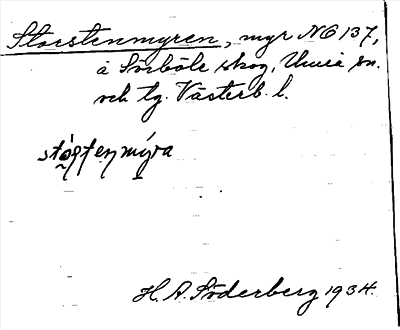 Storstenmyren, myr NO 137,
å Sörböle skog, Umeå sn.
och tg. Västerb. l.
H. A. Söderberg 1934.